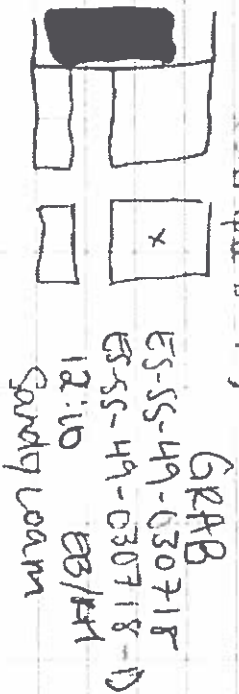 GRAB
ES-SS-49-030718
ES-SS-49-030718-D
12:10 EB/KM
Sandy Loam
X